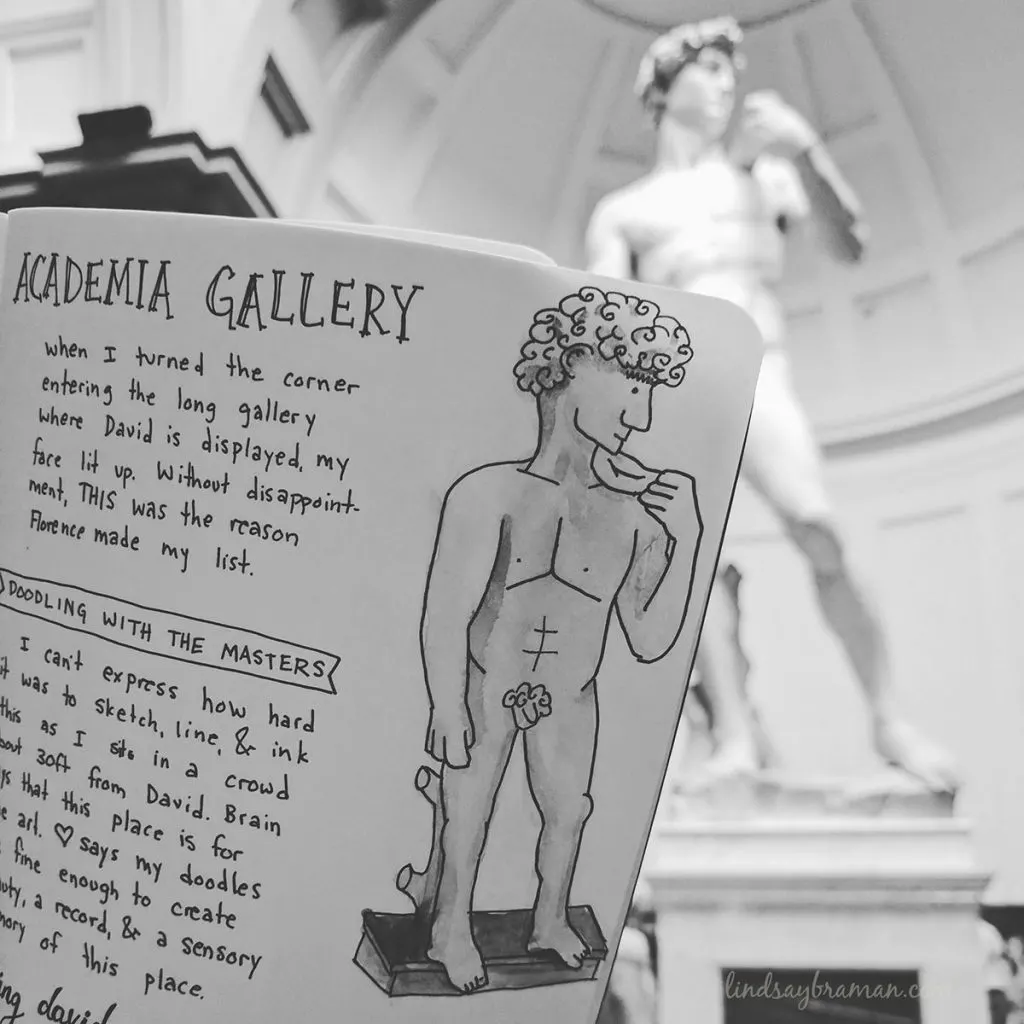 ACADEMIA GALLERY
when I turned the corner
entering the long gallery
where David is displayed, my
face lit up. Without disappoint-
ment, THIS was the reason
Florence made my list.
DOODLING WITH THE MASTERS
I can't express how hard
it was to sketch, line, & ink
this as I sits in a crowd
30ft from David. Brain
that this place is for
art. ♡ says my doodles
fine enough to create
a record, & a sensory
of this place.
david
lindsaybraman.c